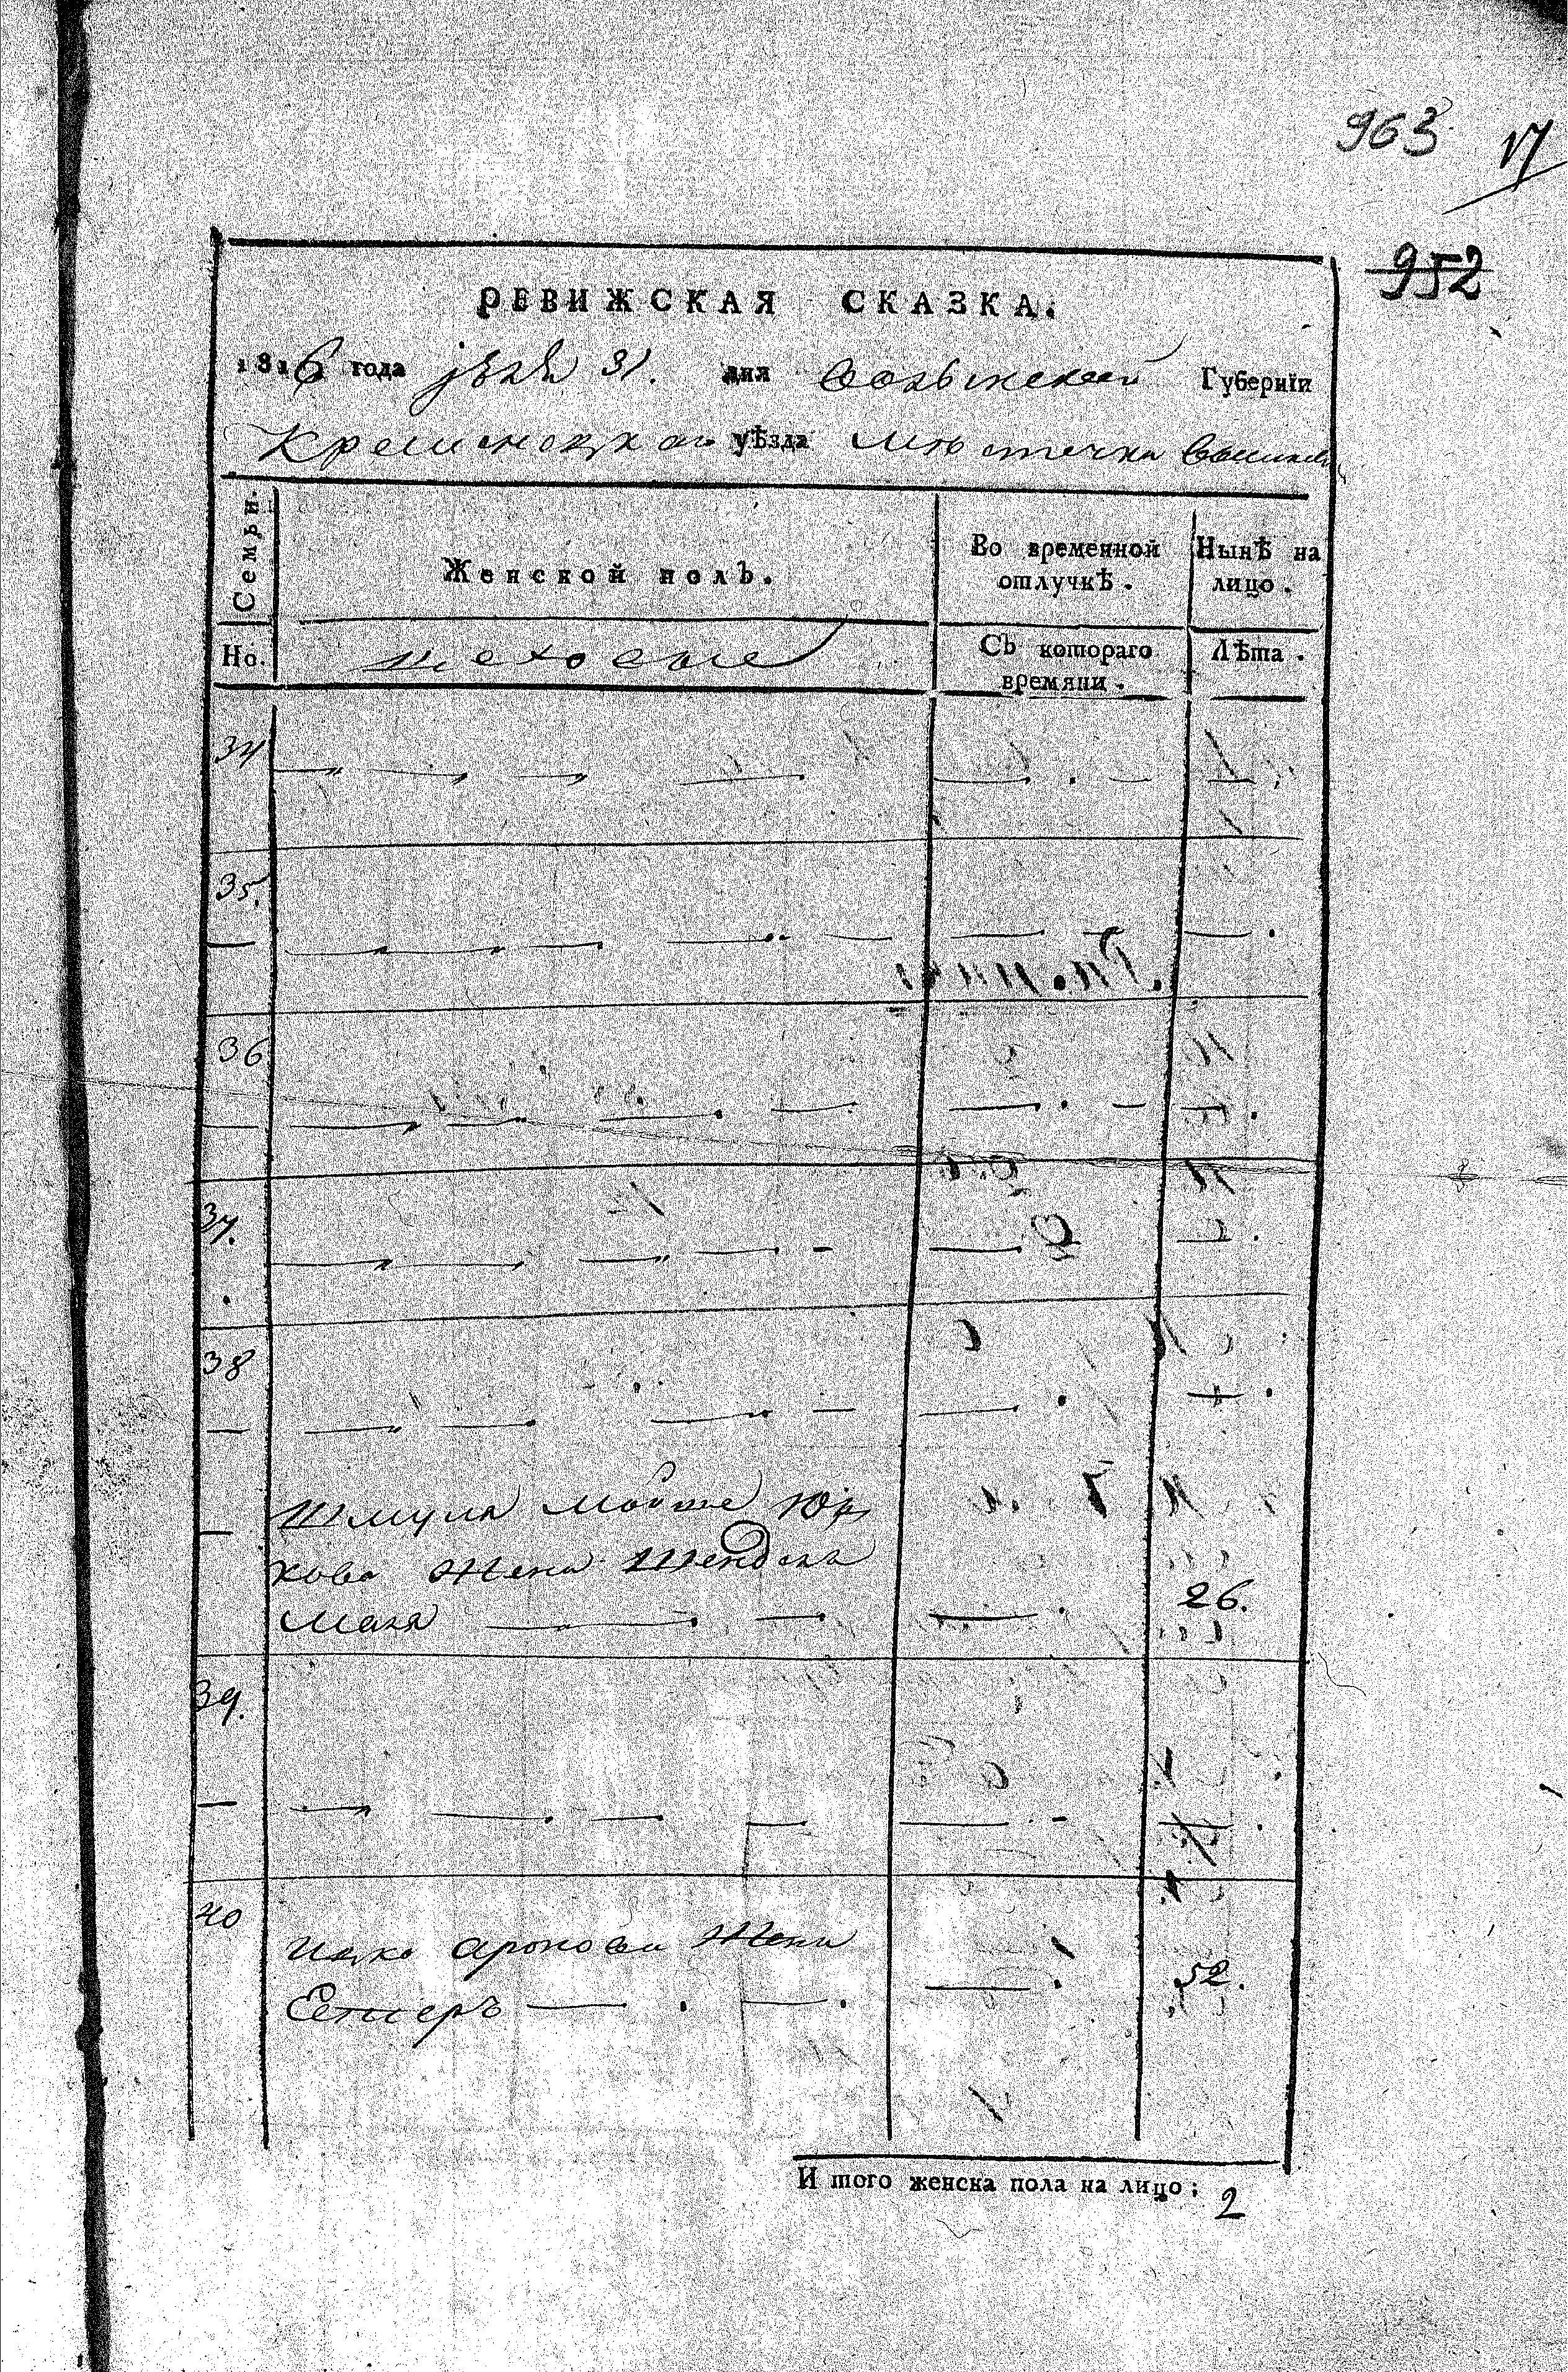 963 17
952
РЕВИЖСКАЯ СКАЗКА.
1816 года 31. дня Волынской Губернїи
Кременецкаго уѣзда Мѣстечка
Семьи. Женской полъ. Во временной отлучкѣ. Нынѣ на лицо.
Но. Съ котораго времяни. Лѣта.
34
35.
36
37.
38
Шмуля Мойше Юр
кова Жена Шендля
Маля 26.
39.
40
Ицко Аронова Жена
Естеръ 52.
И того женска пола на лицо; 2